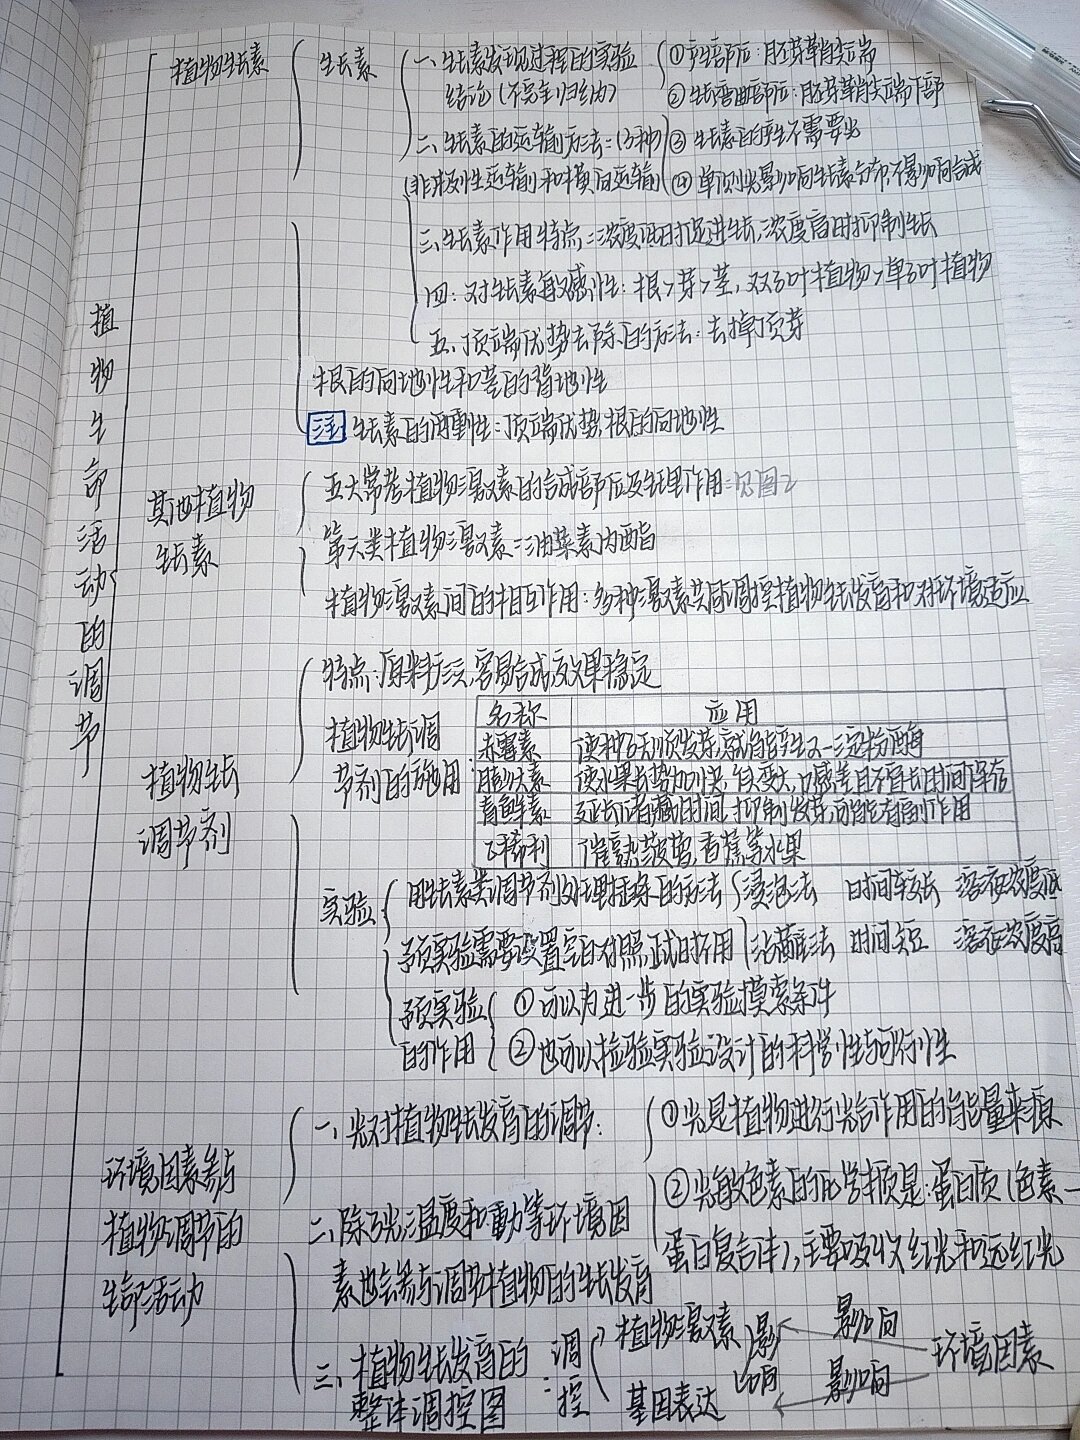 植物生命活动的调节
植物生长素
生长素
一、生长素发现过程的实验
结论(不完全归纳)
①产生部位:胚芽鞘尖端
②生长弯曲部位:胚芽鞘尖端下部
③生长素的产生不需要光
④单侧光影响生长素分布,不影响合成
二、生长素的运输方法:(3种)
(非极性运输和横向运输)
三、生长素作用特点:浓度低时促进生长,浓度高时抑制生长
四:对生长素敏感性:根>芽>茎,双子叶植物>单子叶植物
五、顶端优势去除的方法:去掉顶芽
根的向地性和茎的背地性
注 生长素的两重性:顶端优势,根的向地性
其他植物
生长素
五大常考植物激素的合成部位及生理作用:见图2
第六类植物激素:油菜素内酯
植物激素间的相互作用:多种激素共同调控植物生长发育和对环境适应
植物生长
调节剂
特点:原料广泛,容易合成,效果稳定
植物生长调
节剂的施用:
名称 应用
赤霉素 使种子无须发芽,就能产生α-淀粉酶
膨大素 使水果长势加快、个头变大,口感差且不宜长时间保存
青鲜素 延长贮藏时间,抑制发芽,可能有副作用
乙稀利 催熟菠萝,香蕉等水果
实验
用生长素类调节剂处理插条的方法
浸泡法 时间较长 溶液浓度低
沾蘸法 时间短 溶液浓度高
预实验需要设置空白对照,正式时不用
预实验
的作用
①可以为进一步的实验摸索条件
②也可以检验实验设计的科学性与可行性
环境因素参与
植物调节的
生命活动
一、光对植物生长发育的调节:
①光是植物进行光合作用的能量来源
②光敏色素的化学本质是:蛋白质(色素—
蛋白复合体),主要吸收红光和远红光
二、除了光,温度和重力等环境因
素也会参与调节植物的生长发育
三、植物生长发育的
整体调控图:
调控
植物激素
影响
基因表达
影响
影响
环境因素